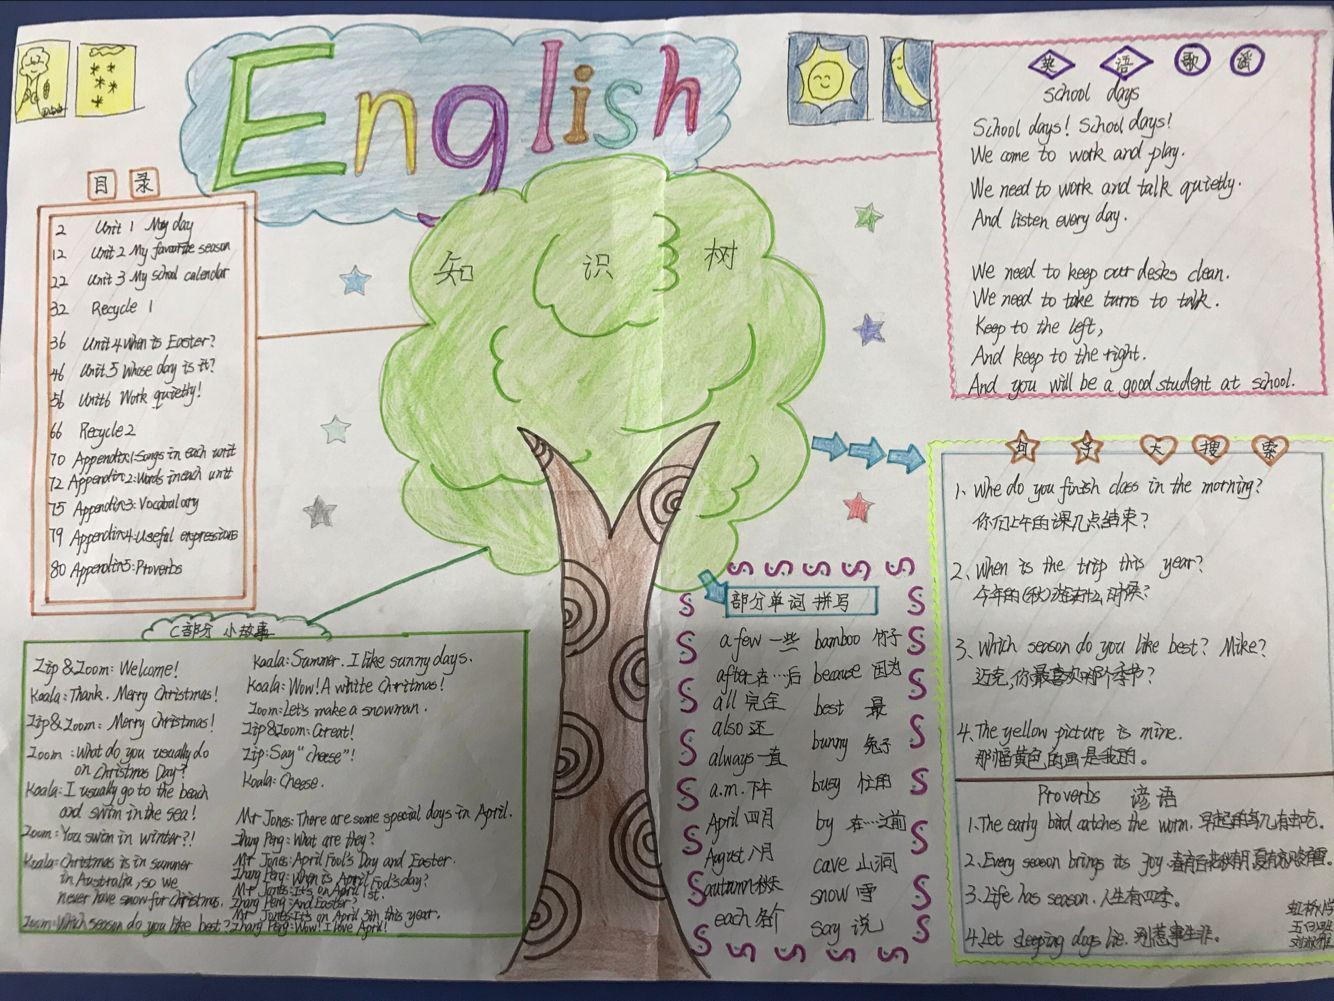 English
知 识 树
目 录
2 Unit 1 My day
12 Unit 2 My favourite season
22 Unit 3 My school calendar
32 Recycle 1
36 Unit 4 When is Easter?
46 Unit 5 Whose day is it?
56 Unit 6 Work quietly!
66 Recycle 2
70 Appendix1: Songs in each unit
72 Appendix2: Words in each unit
75 Appendix3: Vocabulary
79 Appendix4: Useful expressions
80 Appendix5: Proverbs
C部分 小故事
Zip & Zoom: Welcome!
Koala: Thank. Merry Christmas!
Zip & Zoom: Merry Christmas!
Zoom: What do you usually do
on Christmas Day?
Koala: I usually go to the beach
and swim in the sea!
Zoom: You swim in winter?!
Koala: Christmas is in summer
in Australia, so we
never have snow for Christmas.
Zoom: Which season do you like best?
Koala: Summer. I like sunny days.
Koala: Wow! A white Chritmas!
Zoom: Let's make a snowman.
Zip&Zoom: Great!
Zip: Say "cheese"!
Koala: Cheese.
Mr Jones: There are some special days in April.
Zhang Peng: What are they?
Mr Jones: April Fool's Day and Easter.
Zhang Peng: When is April Fool's day?
Mr Jones: It's on April 1st.
Zhang Peng: And Easter?
Mr Jones: It's on April 5th this year.
Zhang Peng: Wow! I love April!
部分单词 拼写
a few 一些
after 在…后
all 完全
also 还
always 一直
a.m. 上午
April 四月
August 八月
autumn 秋天
each 各个
bamboo 竹子
because 因为
best 最
bunny 兔子
busy 忙的
by 在…之前
cave 山洞
snow 雪
say 说
英 语 歌 谣
School days
School days! School days!
We come to work and play.
We need to work and talk quietly.
And listen every day.
We need to keep our desks clean.
We need to take turns to talk.
Keep to the left,
And keep to the right.
And you will be a good student at school.
句 子 大 搜 索
1、Whe do you finish class in the morning?
你们上午的课几点结束?
2、When is the trip this year?
今年的
3、Which season do you like best? Mike?
迈克,你最喜欢哪个季节?
4、The yellow picture is mine.
那幅黄色的画是我的。
Proverbs 谚语
1、The early bird catches the worm. 早起的鸟儿有虫吃。
2、Every season brings its joy.
3、Life has season. 人生有四季。
4、Let sleeping dogs lie. 别惹事生非。